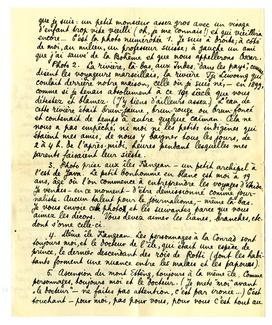 que je suis: un petit monsieur assez gros avec un visage
d'enfant trop vite vieilli (oh, je me connais!) et qui vieillira
encore. — c'est la photo numérotée 1. Je suis à droite; à côté
de moi, au milieu, un professeur suisse; à gauche un ami
que j'ai sauvé de la Bohème et que nous appellerons Oscar.
Photo 2. La rivière, là-bas, aux Indes "dans les pays", comme
disent les voyageurs marseillais, la rivière Tji Liwong qui
coulait derrière notre maison; celle où je suis né — en 1899,
comme si je tenais absolument à ce 19e siècle que vous
détestez, le blamez. (J'y tiens d'ailleurs assez.) L'eau de
cette rivière était brun-jaune, brun-rouge ou brun foncé
et contenait de temps à autre quelque caïman. Cela ne
nous a pas empêché, ni moi ni les petits indigènes qui
étaient mes amis, de nous y baigner tous les jours, de
2 à 4 h. de l'après-midi, heures pendant lesquelles mes
parents faisaient leur sieste.
3. Photo prise aux îles Kangean. — un petit archipel à
l'est de Java. Le petit bonhomme en blanc est moi à 19
ans, âge où l'on commence à entreprendre les voyages d'
Je venais — en ce moment — d'être commissionné comme jour-
naliste. Aucun talent pour le journalisme, même là-bas.
Je vous envoie cette photo et les suivantes parce que vous
aimez les décors. Vous devez aimer les lianes, branches, etc.
dont s'orne celle-ci.
4. Même île Kangean. Les personnages à la Conrad sont
toujours moi, et le docteur de l'île, qui était une espèce de
prince, le dernier descendant des rois de Rotti (dont les habi-
tants forment une nuance entre les malais et les papous).
5. Ascension du mont Etting, toujours à la même île. Comme
personnages, toujours moi et le docteur. (Je suis moi, avant,
le docteur — ne faites pas attention, c'est par ivresse. — Il est
touchant — pour moi, pas pour vous, pour vous c'est tout au